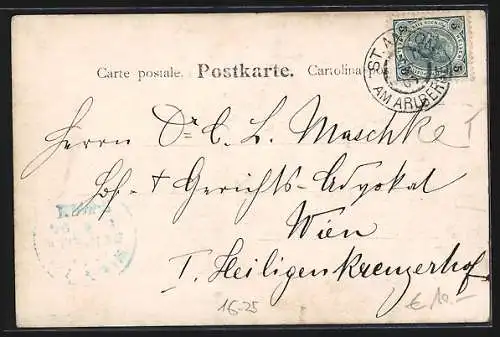 ST. ANTON
AM ARLBERG
5 5
Carte postale. Postkarte. Cartolina
Herrn Dr. C. L. Maschke
Hof- & Gerichts-Advokat
Wien
I. Heiligenkreuzerhof
16-25
€ 10.-